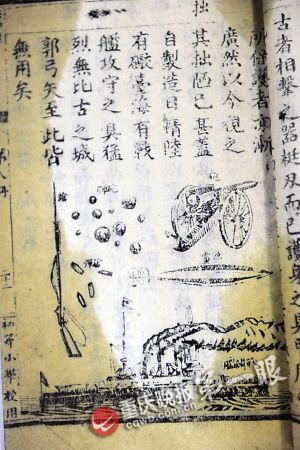 古者相擊之器梃及而已護身之具
所保護者亦漸
廣然以今視之
其拙陋已甚蓋
自製造日精陸
有礮臺海有戰
艦攻守之具猛
烈無比古之城
郭弓矢至此皆
無用矣
拙
第八冊
初等小學校用
重庆晚报 第一眼
cqwb.com.cn